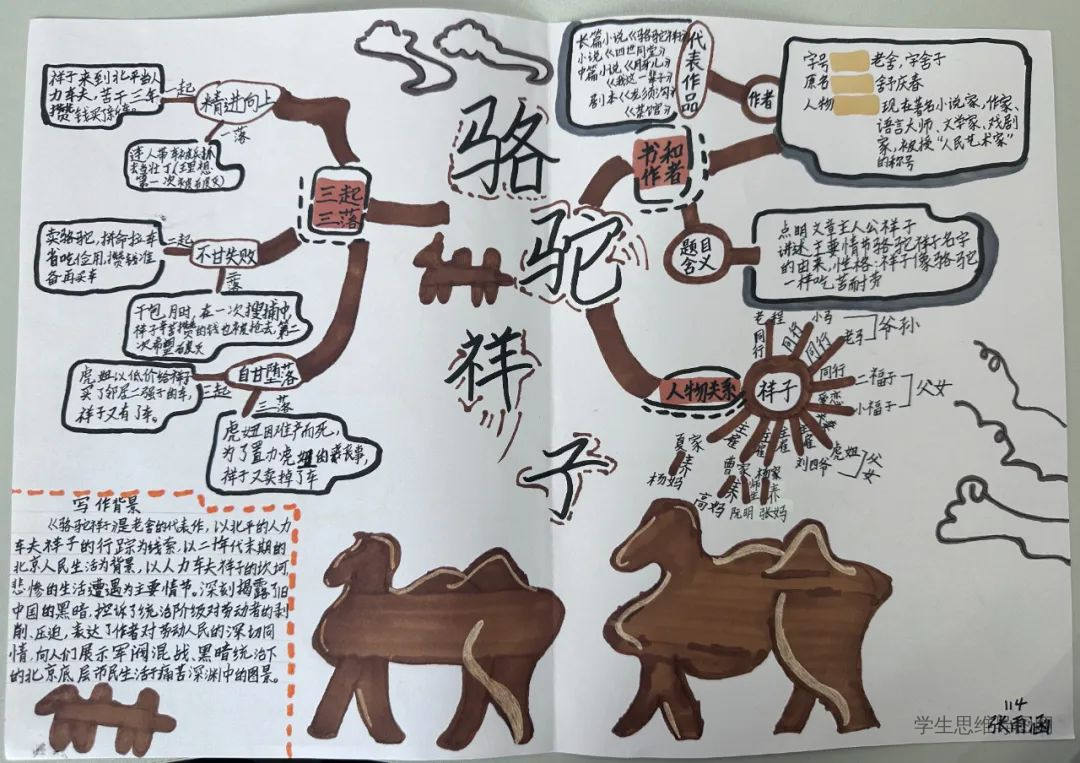 骆
驼
祥
子
三起
三落
精进向上
一起
祥子来到北平当人
力车夫，苦干三年，
攒钱买了
一落
连人带车被
去当壮丁(理想
第一次
不甘失败
二起
卖骆驼，拼命拉车
省吃俭用，攒钱准
备再买车
二落
干包月时，在一次搜捕中，
祥子辛苦攒的钱也被抢去，第二
次希望
自甘堕落
三起
虎妞以低价给祥子
买了邻居二强子的车，
祥子又有了车。
三落
虎妞因难产而死，
为了置办虎妞的丧事，
祥子又卖掉了车
书和
作者
代表作品
长篇小说《骆驼祥子》
小说《四世同堂》
中篇小说《月牙儿》
《我这一辈子》
剧本《龙须沟》
《茶馆》
作者
字号 老舍，字舍予
原名 舒庆春
人物 现在著名小说家，作家、
语言大师、文学家、戏剧
家，被授“人民艺术家”
的称号
题目
含义
点明文章主人公祥子
讲述主要情节骆驼祥子名字
的由来，性格：祥子像骆驼
一样吃苦耐劳
人物关系
祥子
老程
同行
同行
小马
同行
老马
爷孙
同行
二强子
爱恋
小福子
父女
虎妞
主雇
刘四爷
父女
主雇
杨家
张妈
师生
阮明
主雇
曹家
高妈
夏家
杨妈
写作背景
《骆驼祥子》是老舍的代表作，以北平的人力
车夫祥子的行踪为线索，以二十年代末期的
北京人民生活为背景，以人力车夫祥子的坎坷
悲惨的生活遭遇为主要情节。深刻揭露了旧
中国的黑暗，控诉了统治阶级对劳动者的剥
削、压迫，表达了作者对劳动人民的深切同
情，向人们展示军阀混战、黑暗统治下
的北京底层市民生活于痛苦深渊中的图景。
114
张雨涵
学生思维